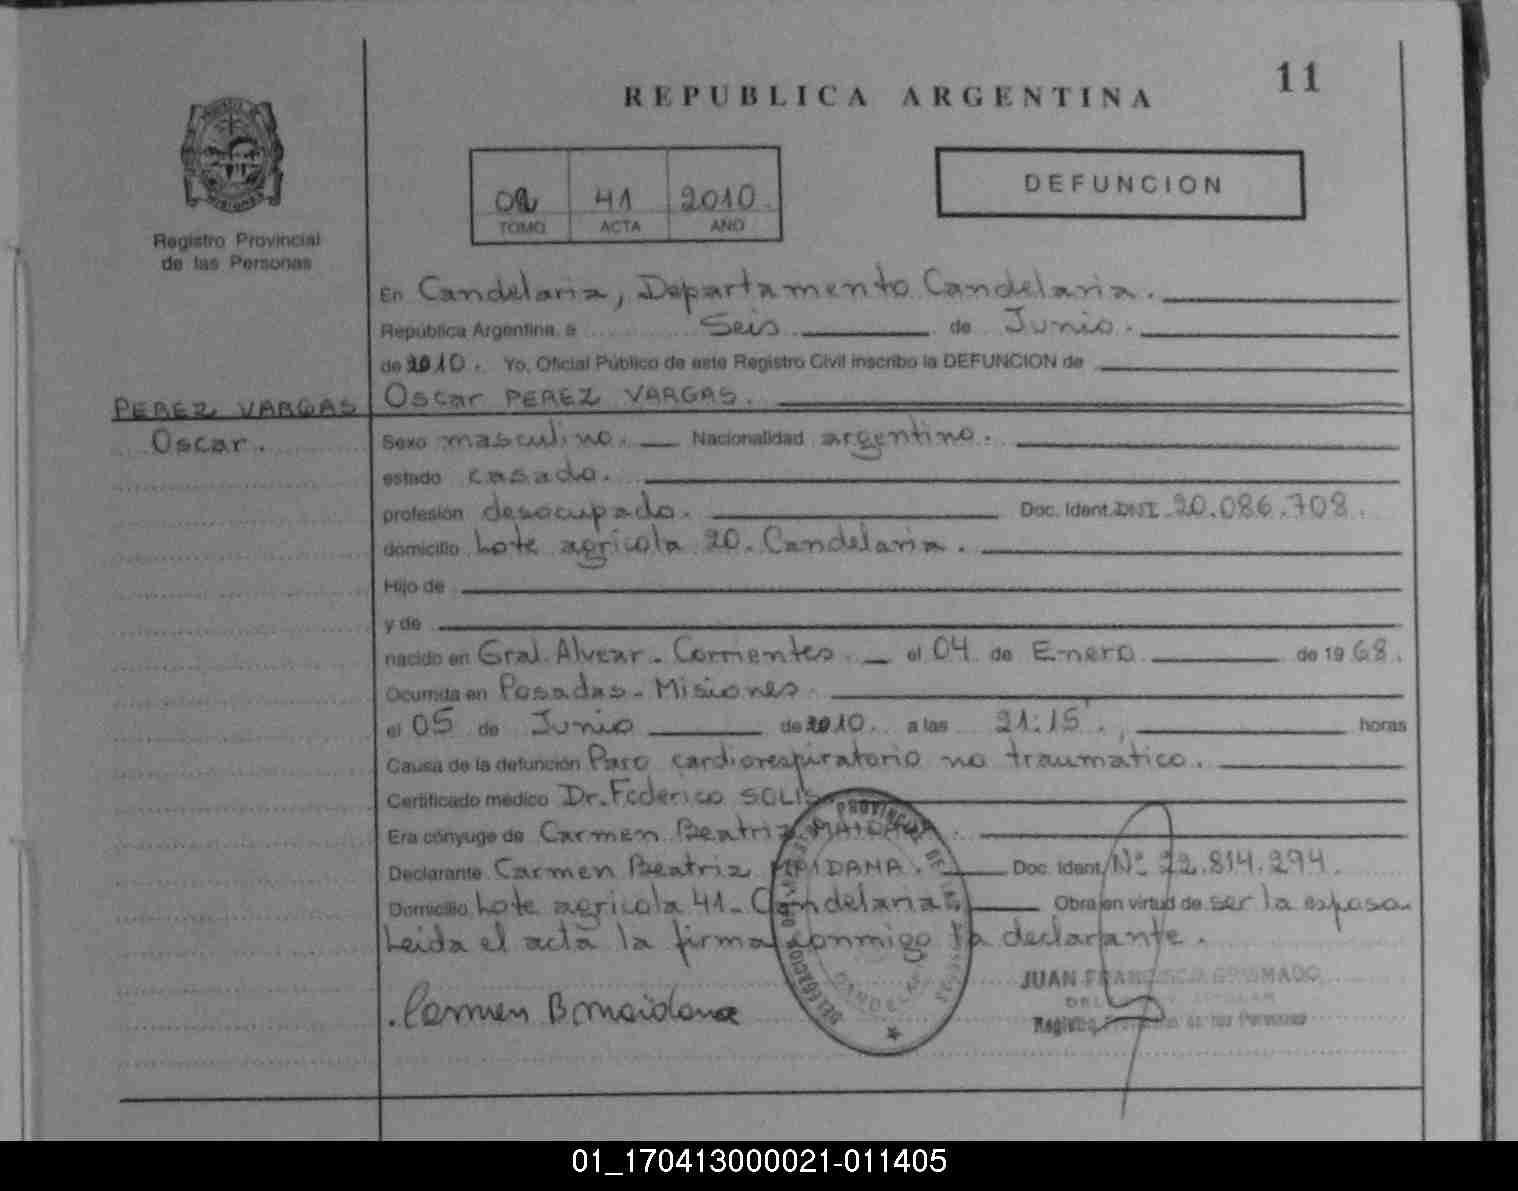 11
REPUBLICA ARGENTINA
Registro Provincial
de las Personas
41 2010
TOMO ACTA AÑO
DEFUNCION
En Candelaria, Departamento Candelaria.
República Argentina, a Seis de Junio.
de 2010. Yo, Oficial Público de este Registro Civil inscribo la DEFUNCION de
PEREZ VARGAS Oscar PEREZ VARGAS.
Oscar. Sexo masculino. Nacionalidad argentino.
estado casado.
profesión desocupado. Doc. Ident. DNI 20.086.708.
domicilio Lote agricola 20. Candelaria.
Hijo de
y de
nacido en Gral. Alvear - Corrientes. el 04 de Enero de 19 68.
Ocurrida en Posadas - Misiones.
el 05 de Junio de 2010. a las 21:15 horas
Causa de la defunción Paro cardiorespiratorio no traumático.
Certificado médico Dr. Federico SOLIS
Era cónyuge de Carmen Beatriz MAIDANA.
Declarante Carmen Beatriz MAIDANA. Doc. Ident. Nº 22.814.294.
Domicilio Lote agricola 41 - Candelaria Obra en virtud de ser la esposa.
Leida el acta la firma conmigo la declarante.
Carmen B Maidana
JUAN FRANCISCO
Registro Provincial de las Personas
01_170413000021-011405